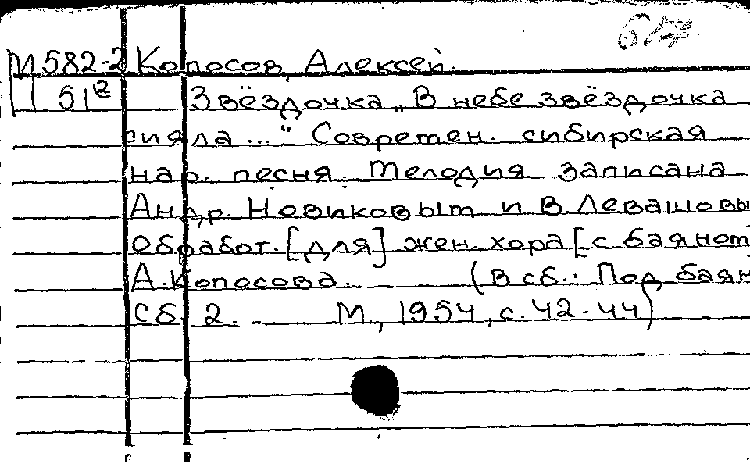 М 582-2 Копосов, Алексей.
51 Звёздочка „В небе звёздочка
сияла..." Современ. сибирская
нар. песня. Мелодия записана
Андр. Новиковым и В. Левашовы
Обработ. [для] жен. хора [с баяном]
А. Копосова. (В сб.: Под баян
Сб. 2. М., 1954, с. 42-44)